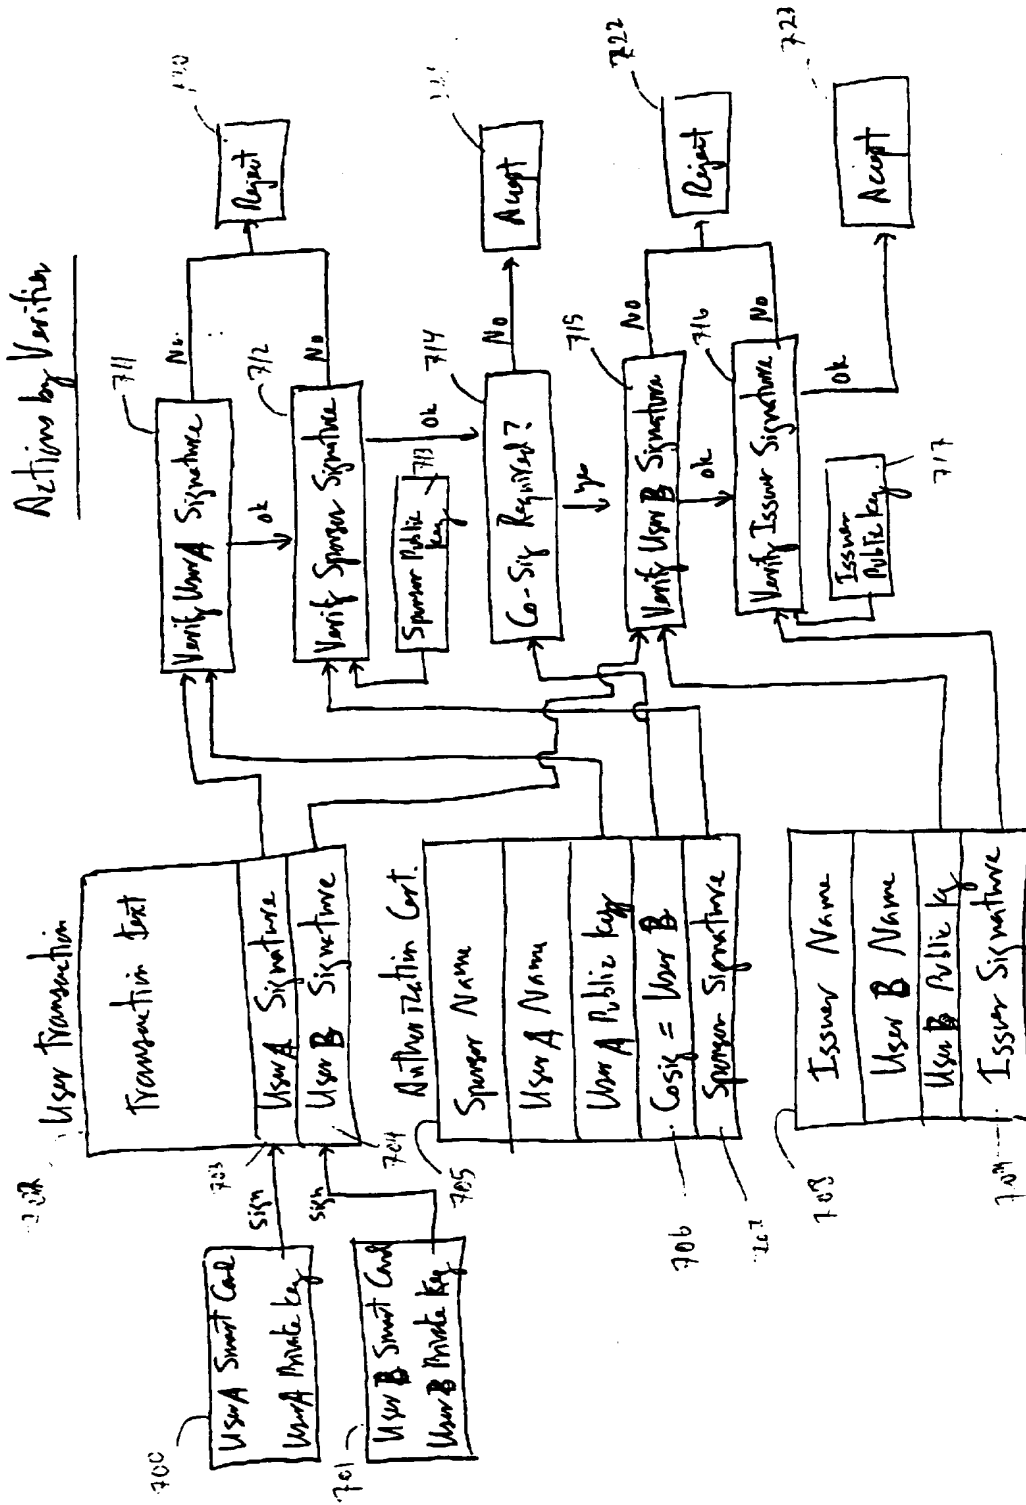 Actions by Verifier
700
User A Smart Card
User A Private Key
701
User B Smart Card
User B Private Key
sign
sign
User Transaction
Transaction Text
User A Signature
User B Signature
703
704
Authorization Cert.
705
Sponsor Name
User A Name
User A Public Key
Cosig = User B
Sponsor Signature
706
708
Issuer Name
User B Name
User B Public Key
Issuer Signature
711
Verify User A Signature
No
ok
712
Verify Sponsor Signature
No
ok
713
Sponsor Public
Key
714
Co-Sig Required?
No
yes
715
Verify User B Signature
No
ok
716
Verify Issuer Signature
No
ok
Issuer
Public Key
717
Reject
Accept
722
Reject
723
Accept